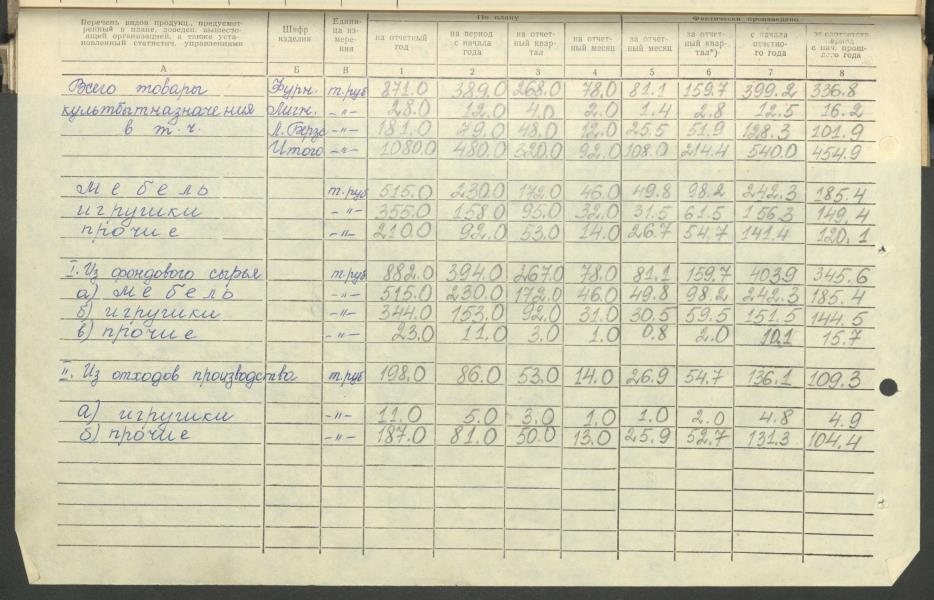 Перечень видов продукц., предусмот-
ренный в плане, доведен. вышесто-
ящей организацией, а также уста-
новленный статистич. управлениями
Шифр изделия
Едини-
ца из-
мере-
ния
По плану
на отчетный год
на период с начала года
на отчет-
ный квар-
тал
на отчет-
ный месяц
Фактически произведено
за отчет-
ный месяц
за отчет-
ный квар-
тал*)
с начала отчетно-
го года
за соответств. период
с нач. прош-
лого года
А Б В 1 2 3 4 5 6 7 8
Всего товары Фурн. т.руб 871.0 389.0 268.0 78.0 81.1 159.7 399.2 336.8
культбытназначения Лигн. -"- 28.0 12.0 4.0 2.0 1.4 2.8 12.5 16.2
в т.ч. Л.Берзе -"- 181.0 79.0 48.0 12.0 25.5 51.9 128.3 101.9
Итого -"- 1080.0 480.0 320.0 92.0 108.0 214.4 540.0 454.9
Мебель т.руб 515.0 230.0 172.0 46.0 49.8 98.2 242.3 185.4
игрушки -"- 355.0 158.0 95.0 32.0 31.5 61.5 156.3 149.4
прочие -"- 210.0 92.0 53.0 14.0 26.7 54.7 141.4 120.1
I. Из фондового сырья т.руб 882.0 394.0 267.0 78.0 81.1 159.7 403.9 345.6
а) мебель -"- 515.0 230.0 172.0 46.0 49.8 98.2 242.3 185.4
б) игрушки -"- 344.0 153.0 92.0 31.0 30.5 59.5 151.5 144.5
в) прочие -"- 23.0 11.0 3.0 1.0 0.8 2.0 10.1 15.7
II. Из отходов производства т.руб 198.0 86.0 53.0 14.0 26.9 54.7 136.1 109.3
а) игрушки -"- 11.0 5.0 3.0 1.0 1.0 2.0 4.8 4.9
б) прочие -"- 187.0 81.0 50.0 13.0 25.9 52.7 131.3 104.4